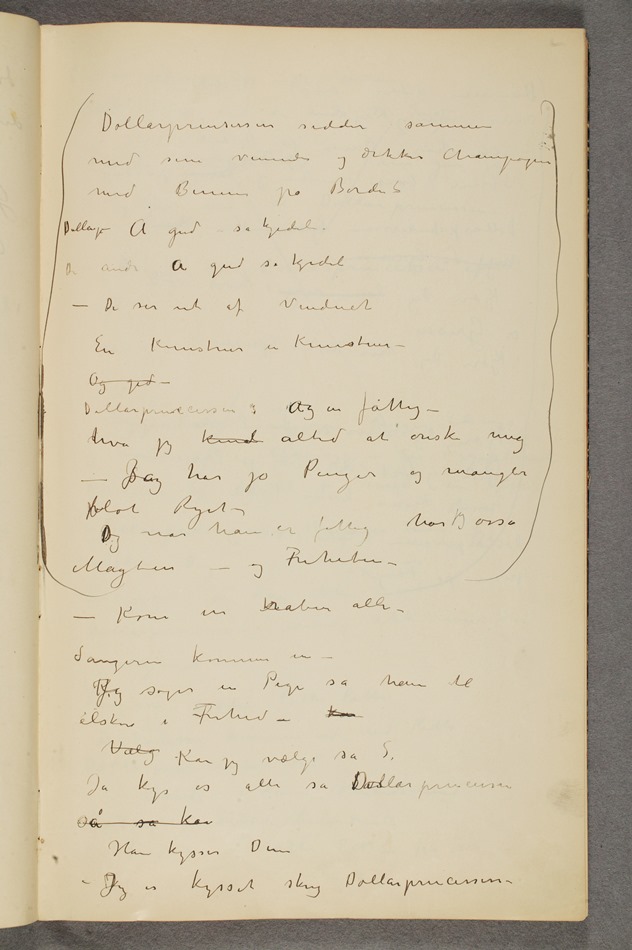 Dollarprinsessen sidder sammen
med sine veninder og drikker Champagne
med Benene på Bordet
Dollarp A gud så kjedeli.
De andr A gud så kjedeli
— De ser ut af Vinduet
En Kunstner en Kunstner —
Og gud —
Dollarprincessen : Og en fattig —
hva jeg kund altid at ønske mig
— Jeg har jo Penger og mangler
blot Ryet —
Og når han er fattig har jeg osså
Magten — og Friheten —
— Kom en kaber alle —
Sangerin kommer in —
Jeg søger en Pige så han til
elsker i Frihed — kan
Valg Kan jeg vælge sa S.
Ja kys os alle sa Dollarprincessen
så sa kan
Han kysser Dem
— Jeg er kysset skreg Dollarprincessen —